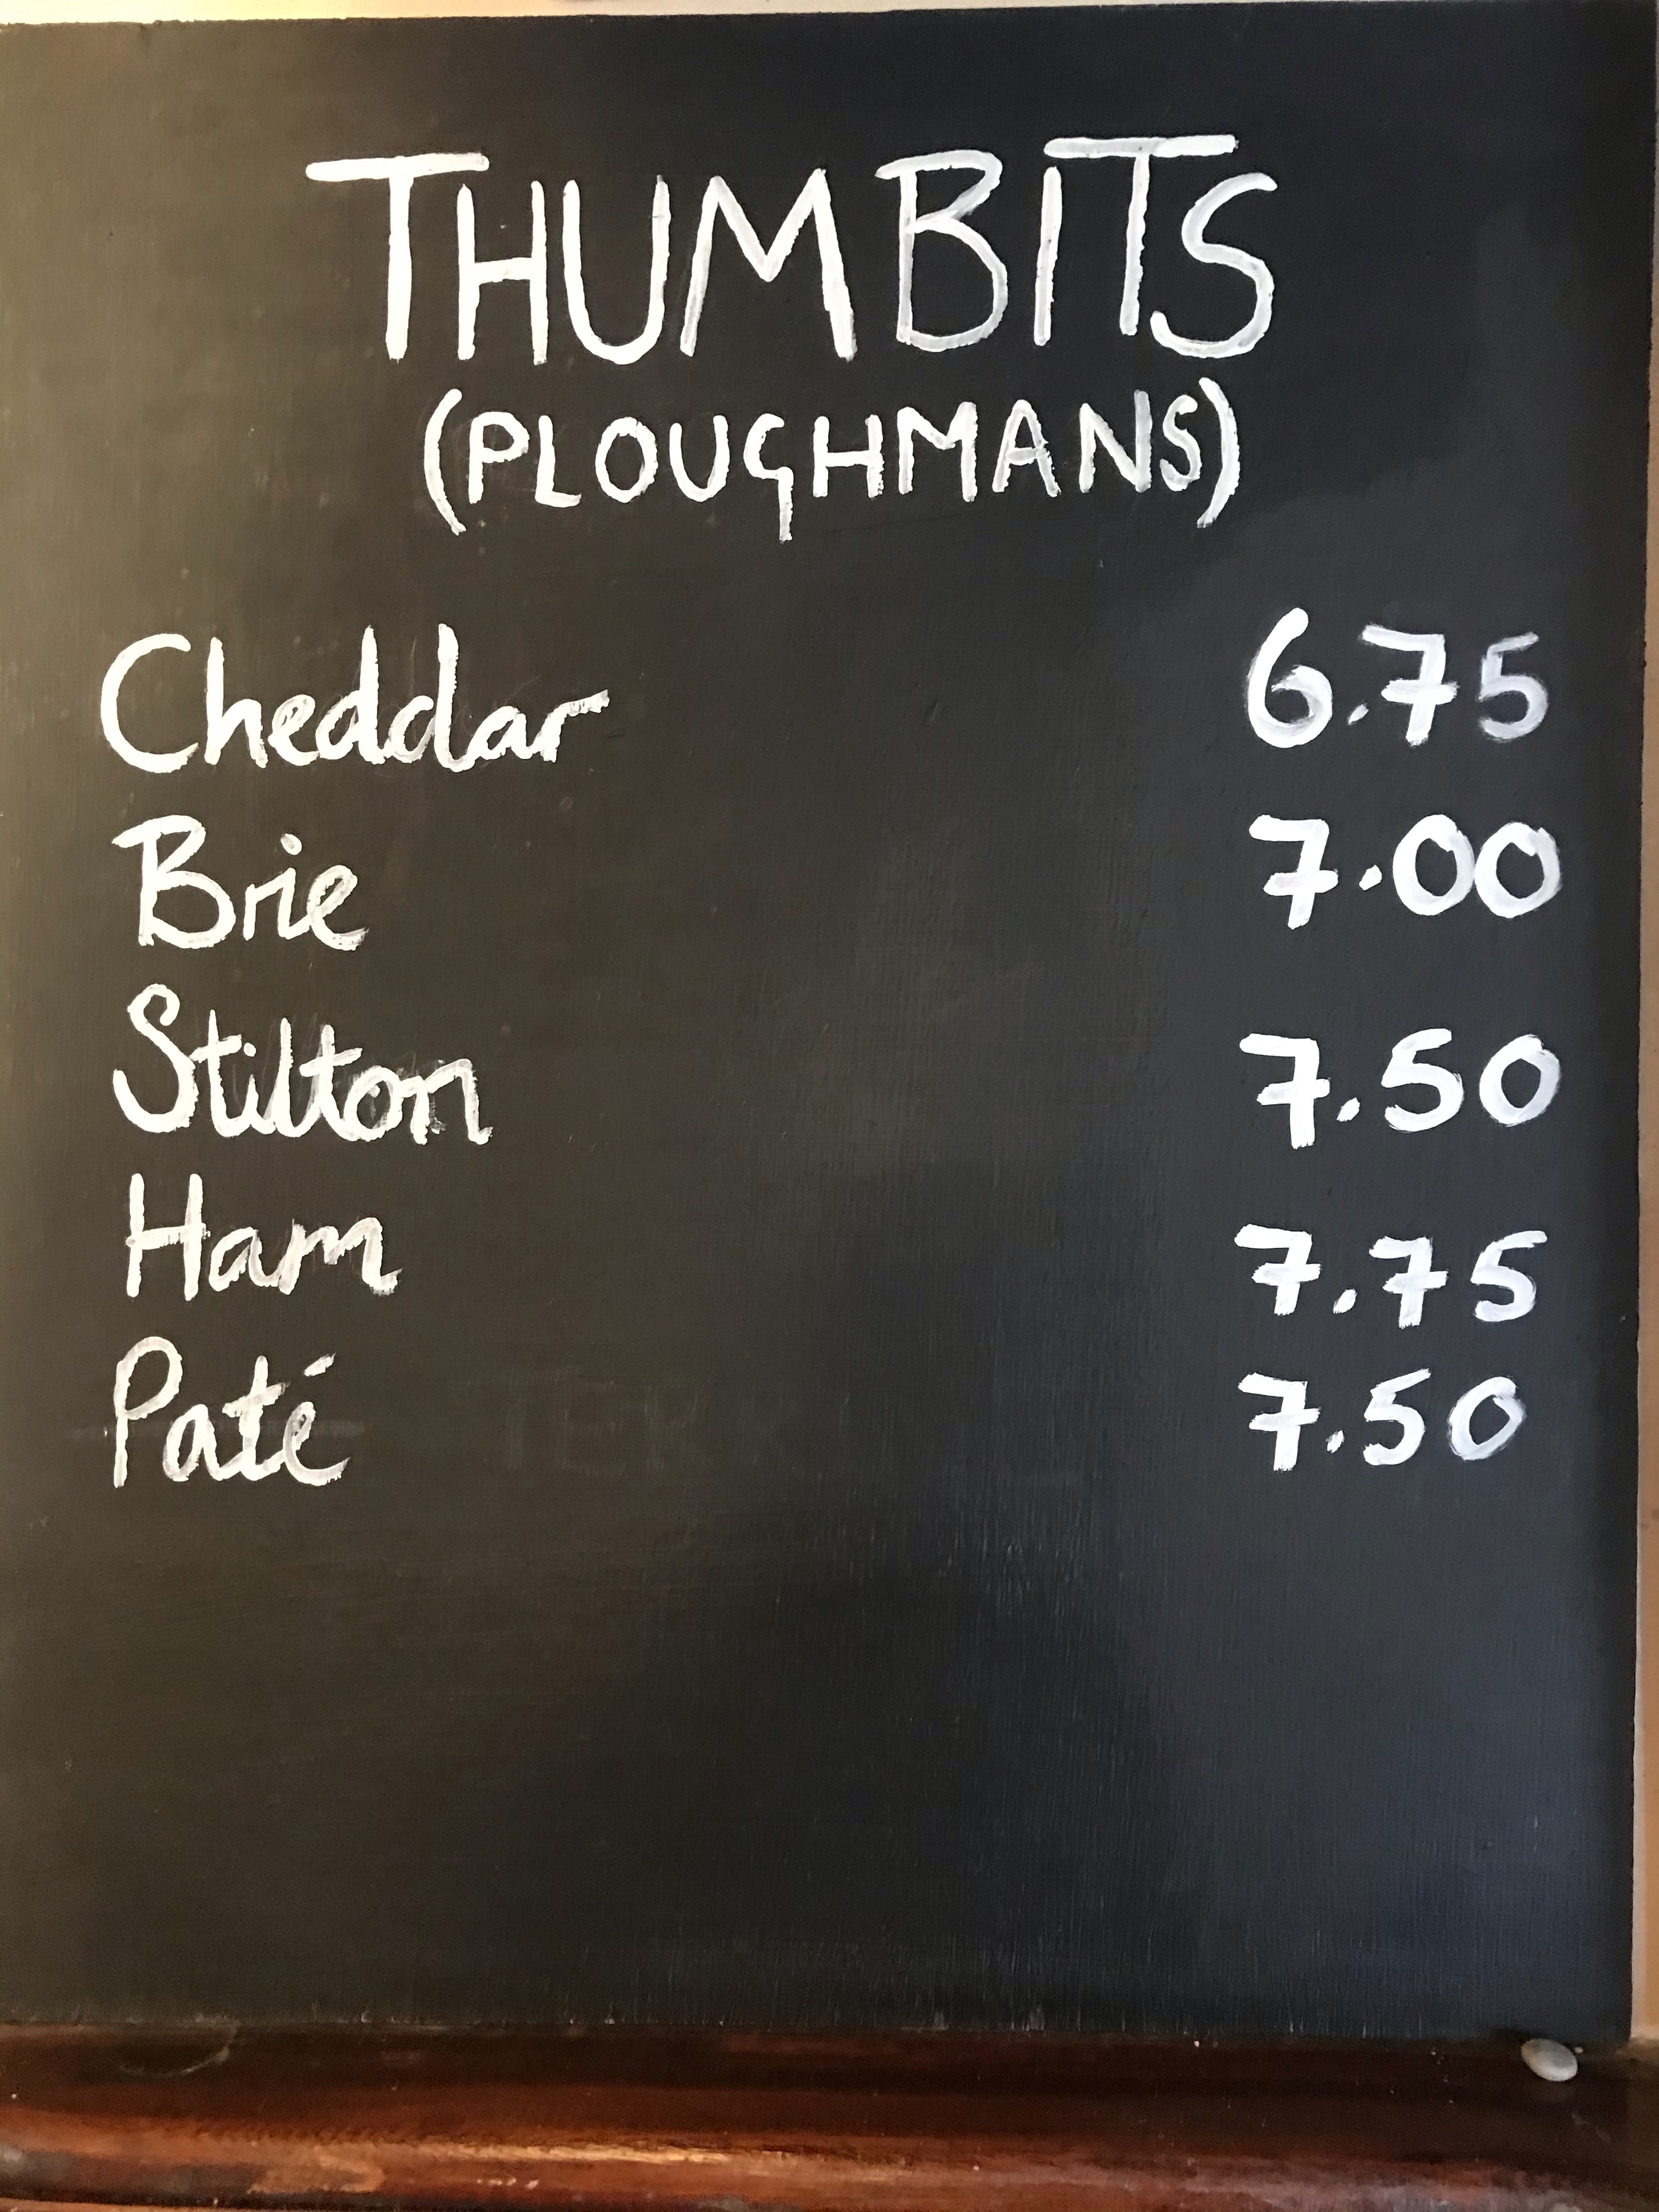 THUMBITS
(PLOUGHMANS)
Cheddar 6.75
Brie 7.00
Stilton 7.50
Ham 7.75
Paté 7.50